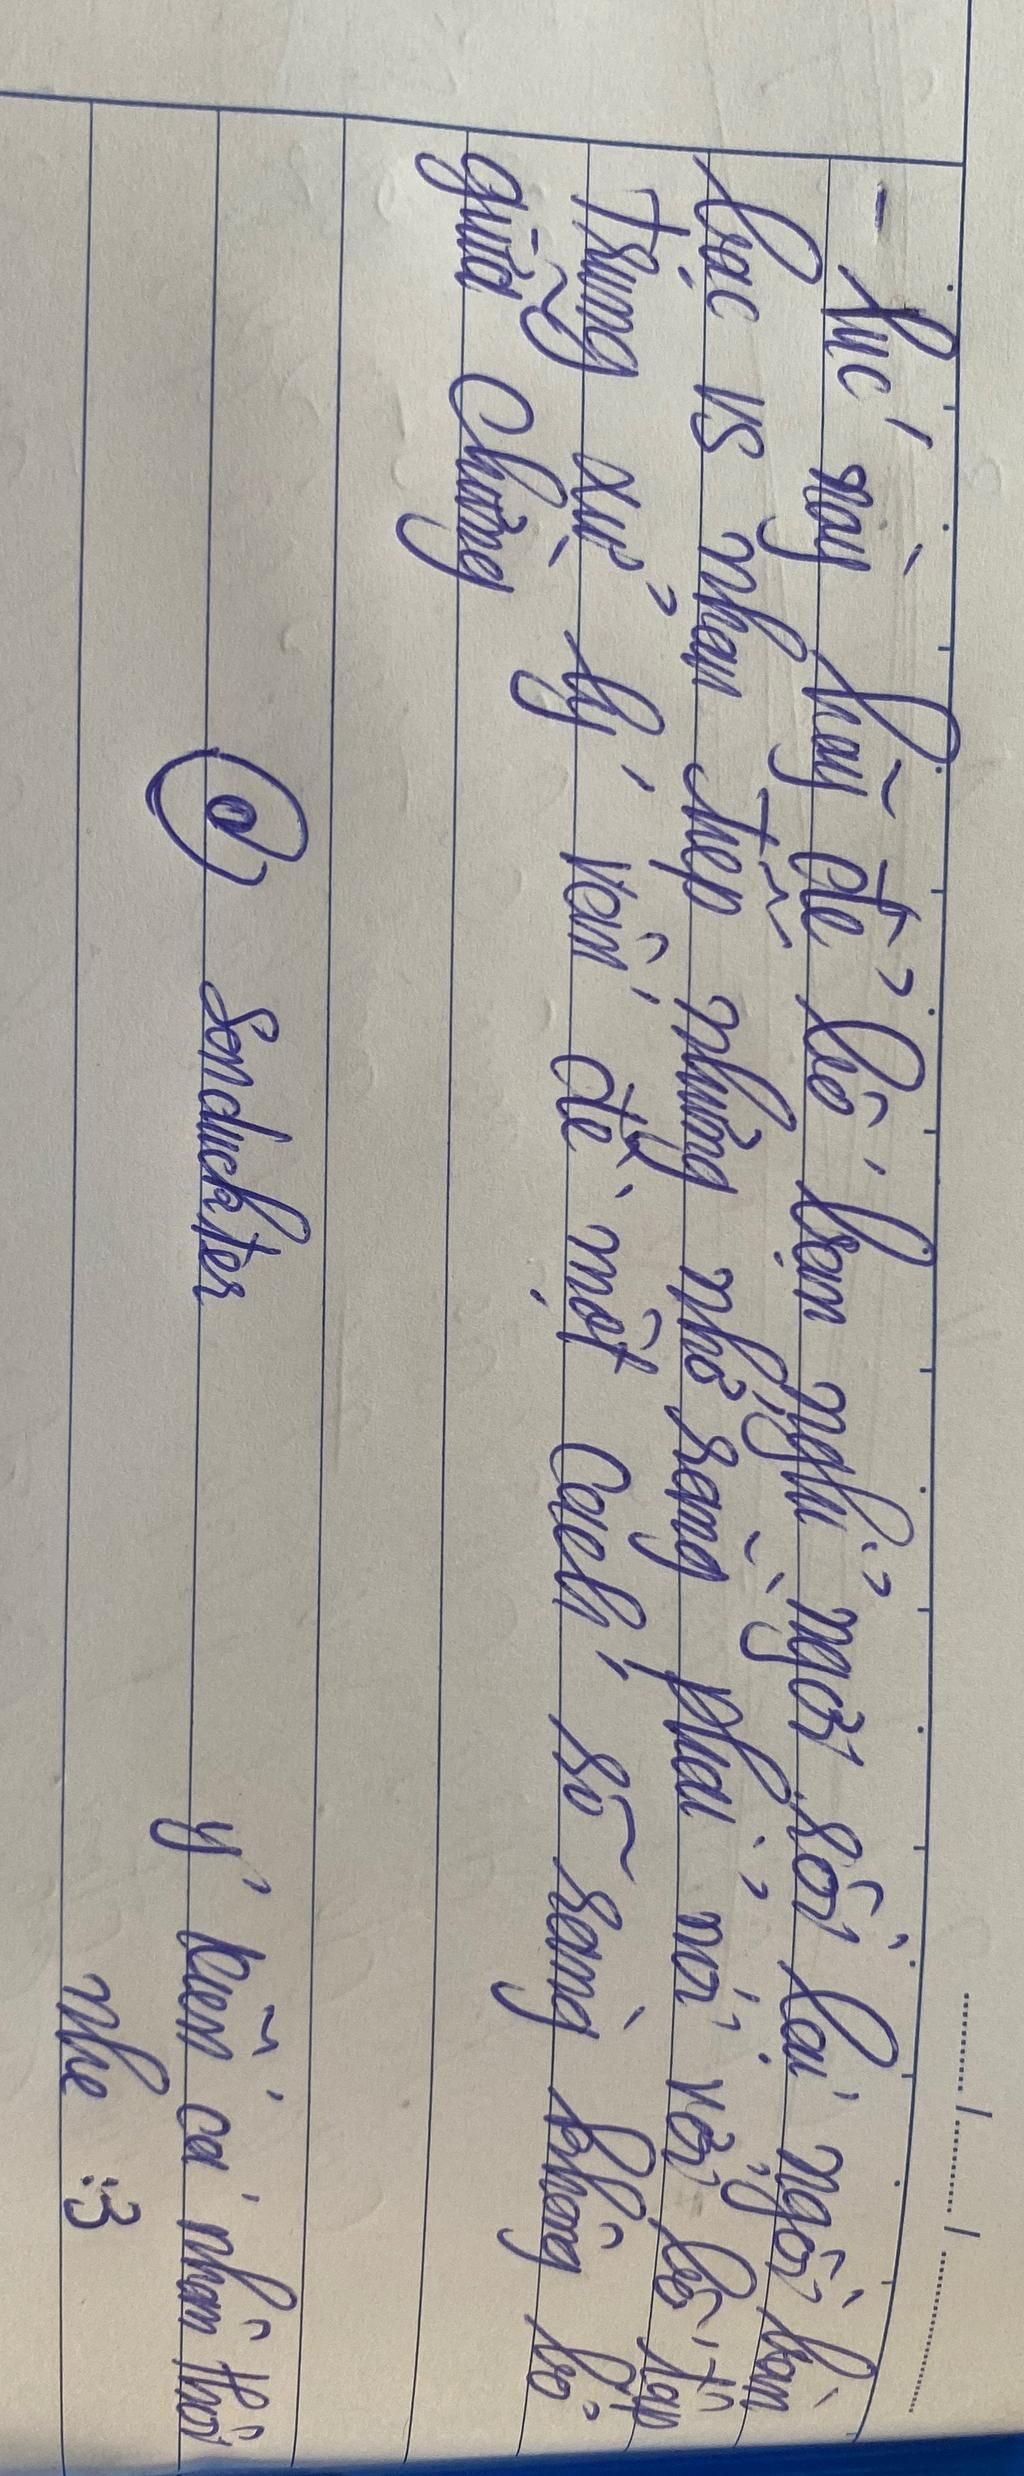 - Lúc này hãy để bố bạn nghỉ ngơi rồi lại ngồi bàn
bạc vs nhau tiếp nhưng nhớ rằng phải nói với bố tập
trung xử lý vấn đề một cách rõ ràng không bỏ
giữa chừng
@ sonduckter
ý kiến cá nhân thôi
nhe :3